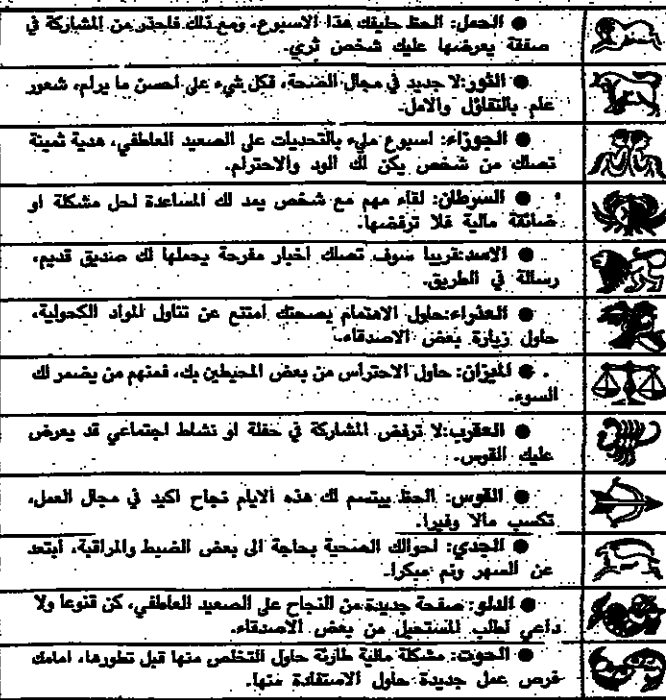 ● الحمل: الحظ حليفك هذا الاسبوع، ومع ذلك فاحتذر من المشاركة في
صفقة يعرضها عليك شخص ثري.
● الثور: لا جديد في مجال الصحة، فكل شيء على احسن ما يرام، شعور
عام بالتفاؤل والامل.
● الجوزاء: اسبوع مليء بالتحديات على الصعيد العاطفي، هدية ثمينة
تصلك من شخص يكن لك الود والاحترام.
● السرطان: لقاء مهم مع شخص يمد لك المساعدة لحل مشكلة او
ضائقة مالية فلا ترفضها.
● الاسد: قريبا سوف تصلك اخبار مفرحة يحملها لك صديق قديم،
رسالة في الطريق.
● العذراء: حاول الاهتمام بصحتك امتنع عن تناول المواد الكحولية،
حاول زيارة بعض الاصدقاء.
● الميزان: حاول الاحتراس من بعض المحيطين بك، فمنهم من يضمر لك
السوء.
● العقرب: لا ترفض المشاركة في حفلة او نشاط اجتماعي قد يعرض
عليك القوس.
● القوس: الحظ يبتسم لك هذه الايام نجاح اكيد في مجال العمل،
تكسب مالا وفيرا.
● الجدي: احوالك الصحية بحاجة الى بعض الضبط والمراقبة، ابتعد
عن السهر ونم مبكرا.
● الدلو: صفحة جديدة من النجاح على الصعيد العاطفي، كن قنوعا ولا
داعي لطلب المستحيل من بعض الاصدقاء.
● الحوت: مشكلة مالية طارئة حاول التخلص منها قبل تطورها، امامك
فرص عمل جديدة حاول الاستفادة منها.